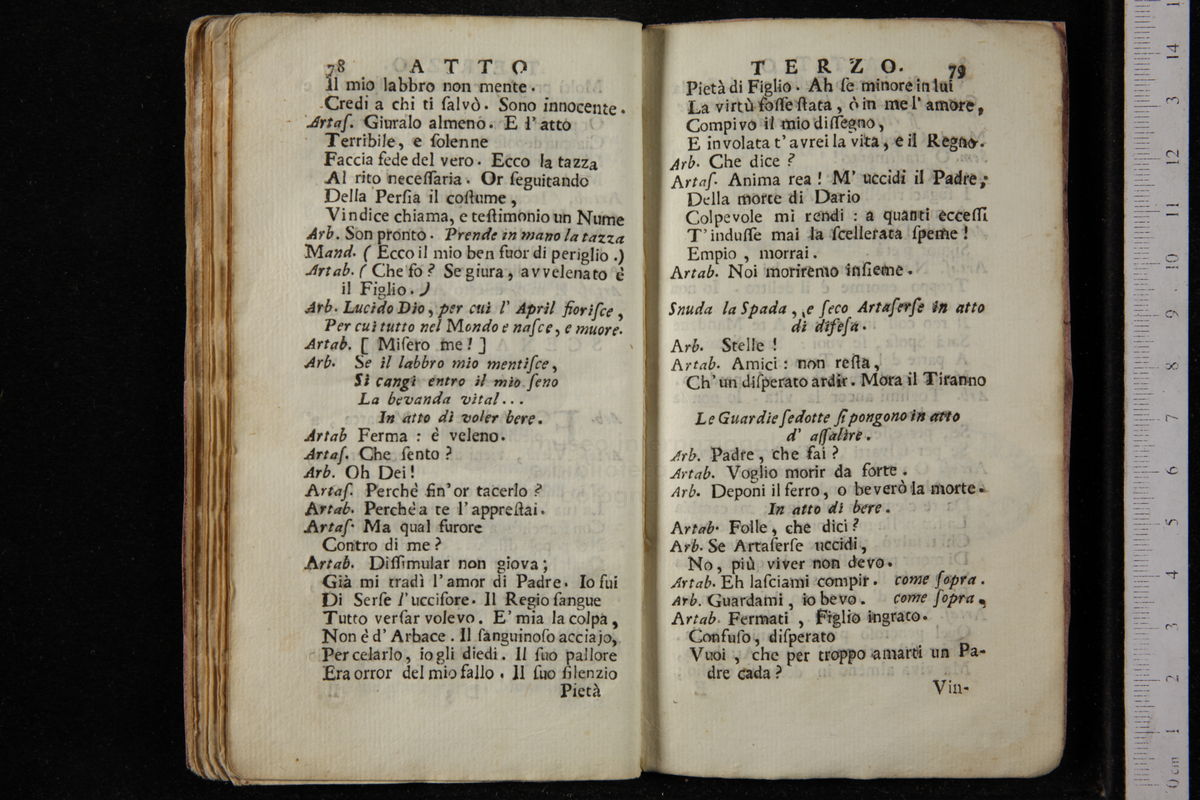 78 ATTO
Il mio labbro non mente.
Credi a chi ti ſalvò. Sono innocente.
Artaſ. Giuralo almeno. E l'atto
Terribile, e ſolenne
Faccia fede del vero. Ecco la tazza
Al rito neceſſaria. Or ſeguitando
Della Perſia il coſtume,
Vindice chiama, e teſtimonio un Nume
Arb. Son pronto. Prende in mano la tazza
Mand. ( Ecco il mio ben fuor di periglio.)
Artab. ( Che fo? Se giura, avvelenato è
il Figlio. )
Arb. Lucido Dio, per cui l' April fioriſce,
Per cui tutto nel Mondo e naſce, e muore.
Artab. [ Miſero me! ]
Arb. Se il labbro mio mentiſce,
Si cangi entro il mio ſeno
La bevanda vital...
In atto di voler bere.
Artab Ferma : è veleno.
Artaſ. Che ſento?
Arb. Oh Dei!
Artaſ. Perchè fin'or tacerlo?
Artab. Perchè a te l'appreſtai.
Artaſ. Ma qual furore
Contro di me?
Artab. Diſſimular non giova;
Già mi tradì l'amor di Padre. Io fui
Di Serſe l'ucciſore. Il Regio ſangue
Tutto verſar volevo. E' mia la colpa,
Non è d' Arbace. Il ſanguinoſo acciajo,
Per celarlo, io gli diedi. Il ſuo pallore
Era orror del mio fallo. Il ſuo ſilenzio
Pietà
TERZO. 79
Pietà di Figlio. Ah ſe minore in lui
La virtù foſſe ſtata, ò in me l'amore,
Compivo il mio diſſegno,
E involata t'avrei la vita, e il Regno.
Arb. Che dice?
Artaſ. Anima rea! M' uccidi il Padre;
Della morte di Dario
Colpevole mi rendi : a quanti ecceſſi
T'induſſe mai la ſcellerata ſpeme!
Empio, morrai.
Artab. Noi moriremo inſieme.
Snuda la Spada, e ſeco Artaſerſe in atto
di difeſa.
Arb. Stelle!
Artab. Amici : non reſta,
Ch'un diſperato ardir. Mora il Tiranno
Le Guardie ſedotte ſi pongono in atto
d' aſſalire.
Arb. Padre, che fai?
Artab. Voglio morir da forte.
Arb. Deponi il ferro, o beverò la morte.
In atto di bere.
Artab. Folle, che dici?
Arb. Se Artaſerſe uccidi,
No, più viver non devo.
Artab. Eh laſciami compir. come ſopra.
Arb. Guardami, io bevo. come ſopra.
Artab. Fermati, Figlio ingrato.
Confuſo, diſperato
Vuoi, che per troppo amarti un Pa-
dre cada?
Vin-
0 cm 1 2 3 4 5 6 7 8 9 10 11 12 3 14